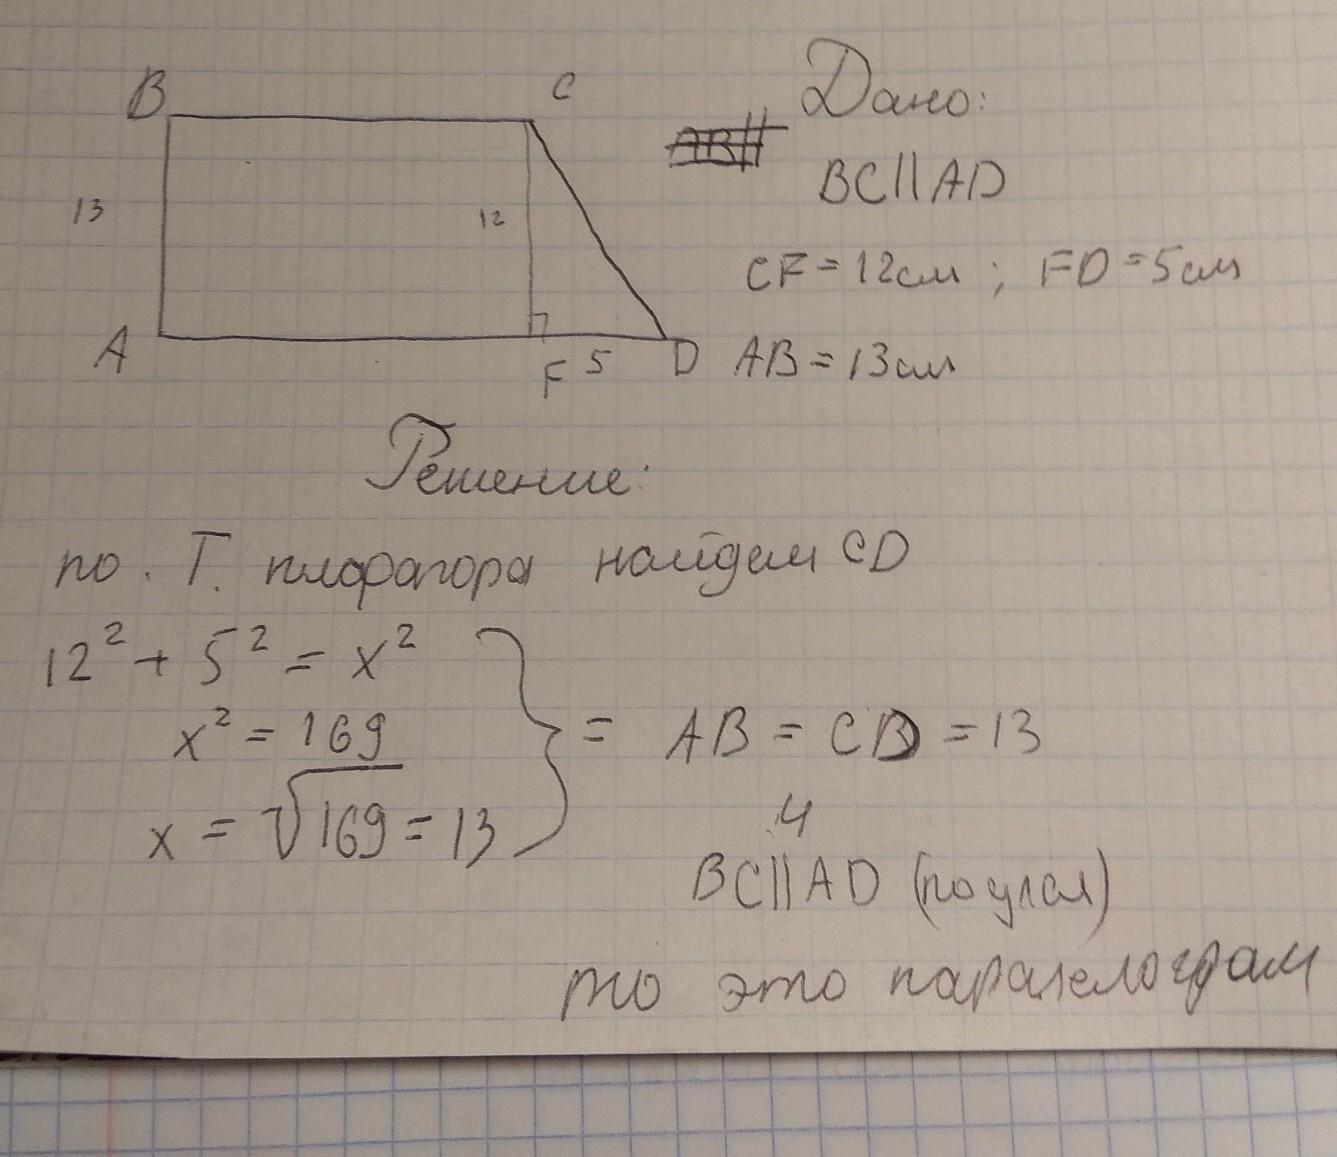 B C
Дано:
AB||
BC||AD
13
12
CF=12см; FD=5см
A F 5 D
AB=13см
Решение:
по. Т. пифагора найдем CD
12² + 5² = x²
x² = 169
x = √169 = 13
} = AB = CD = 13
и
BC||AD (по усл)
то это паралелограм